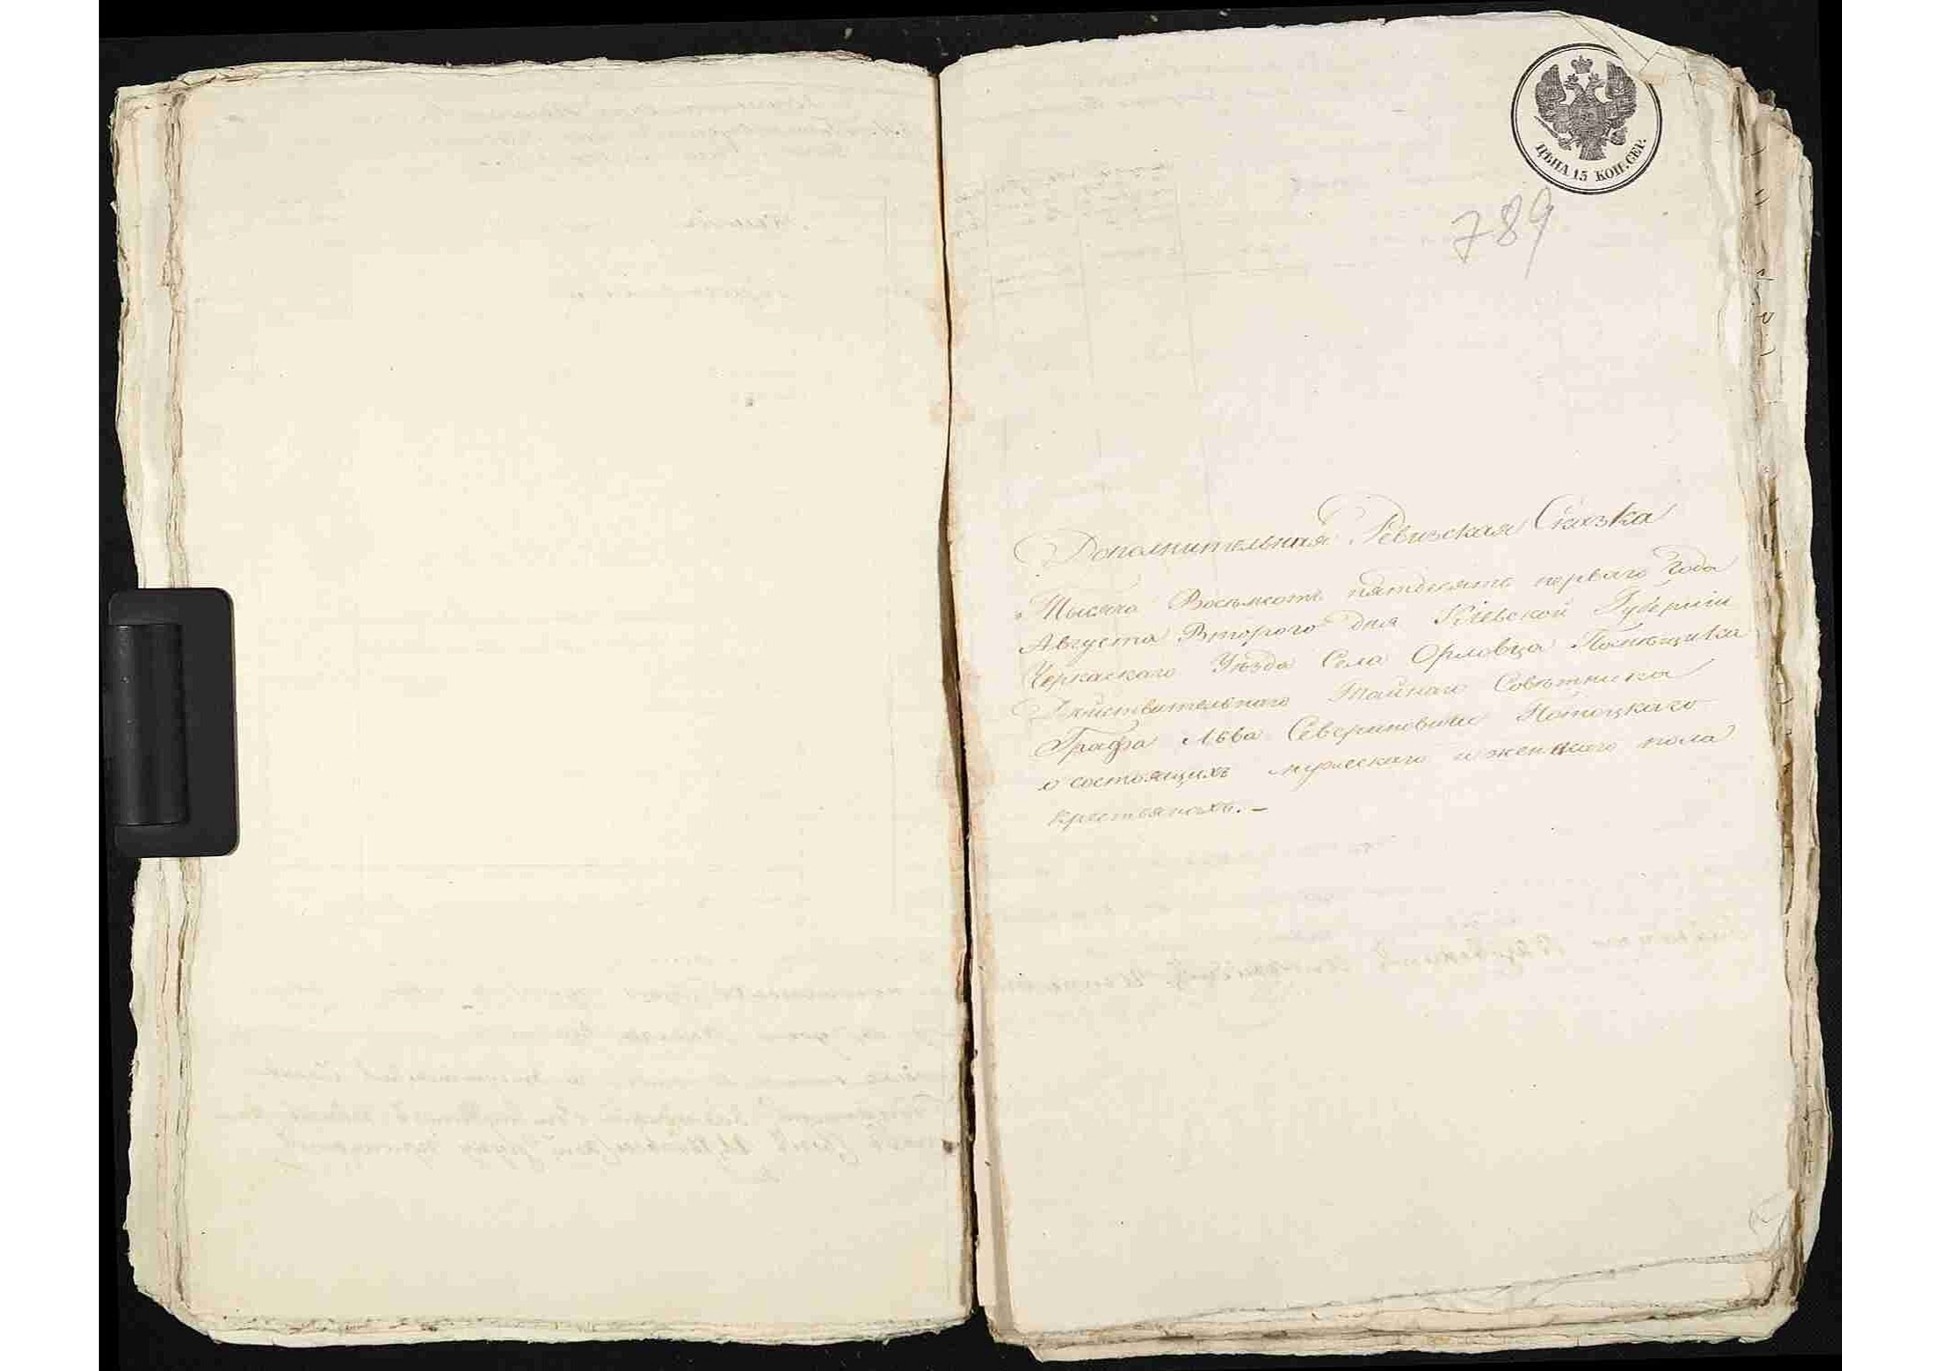 ЦѢНА 15 КОП. СЕР.
789
Дополнительная Ревизская Сказка
Тысяча Восемсотъ пятдесятъ перваго года
Августа Втораго дня Кіевской Губерніи
Черкаскаго Уѣзда Села Орловца Помѣщика
Дѣйствительнаго Тайнаго Совѣтника
Графа Льва Севериновича Потоцкаго
о состоящихъ мужескаго и женскаго пола
крестьянахъ. –